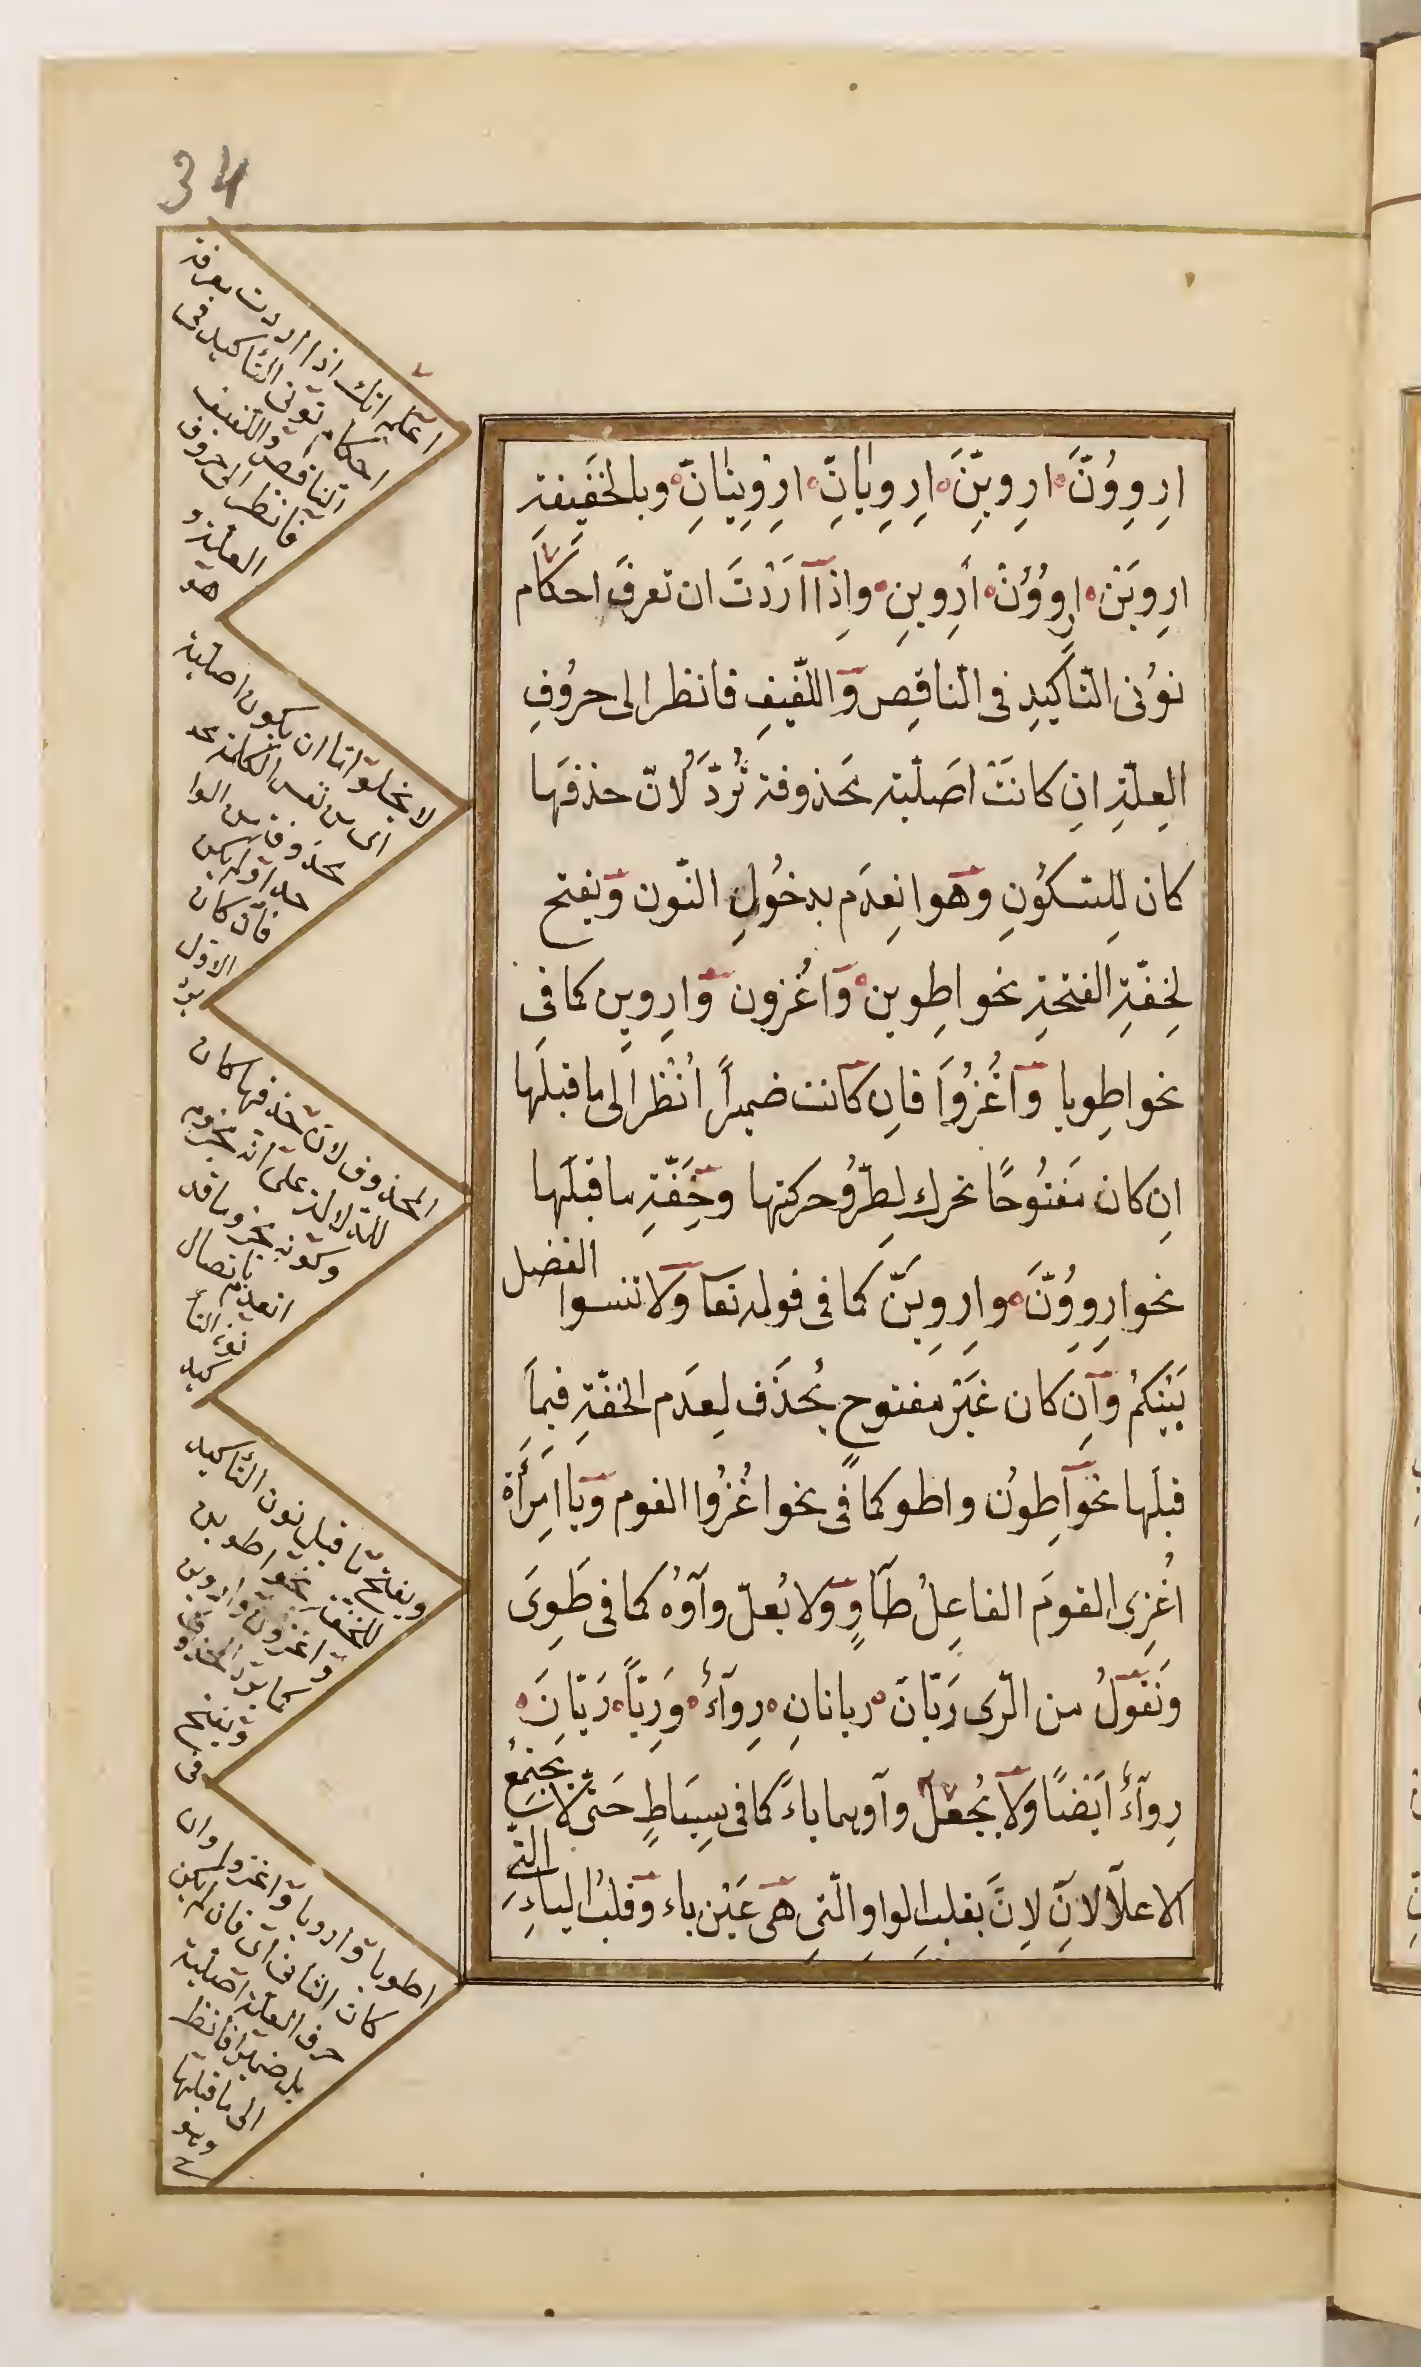 34
اِرِوُوُنَّ ارِوِيِنَّ اِرِوِيانِّ ارْوِينَانِّ وبالخَفِيفةِ
ارِوِيَنْ ارِوُوُنْ اَرِوِينِ واِذَا اَرَدْتَ ان تعرفَ احكَام
نوُنى التّاكيدِ فى النّاقِص وَاللّفيفِ فانظر الى حرُوفِ
العِلّةِ اِن كانَتْ اصَليّة محَذوفة تُردّ لُانّ حذفَها
كان لِلسّكوُنِ وَهو انعِدَم بدخُولِ النّون وَيفتح
لِخفّةِ الفتحةِ نحو اطِوين وَاغُزون وَارِوين كما فى
نحو اطِويا وَاغُزُوَا فاِن كانت ضميراً اُنظُر الى ما قبلَها
اِن كان مَفتُوحًا تحرك لِطرُو حركتها وخِفّةِ ما قبلَها
نحو ارِوِوُنَّ وارِوِيَنَّ كمَا فى قوله تعَا وَلا تنسوا الفضل
بَيْنَكمُ وَاِن كان غيَر مفتوحٍ يُحذَف لِعدَم الخفّةِ فيمَا
قبلَها نحو اَطِوُن واطو كمَا فى نحو اغُزُوا القوم وَيا امِرَأة
اغُزِى القومَ الفاعِلُ طَاوٍ وَلا يُعلّ وآوُه كما فى طَوِىَ
وَنَقوَلُ من الرّى رَيّانَ ريانانِ رِوآءٌ وَرِيّاً رَيّانَِ
رِوآءٌ اَيضًا وَلا يُجعلَ وآوهما ياءً كما فى سِيَاطٍ حَتّىٰ لا يجتمعُ
الاعلاَلانِ لانَّ بقلبِ الواوِ الّتىِ هَى عَيْن ياء وَقلبُ الياءِ التّى
اعلم انك اذا اردت معرفة
احكام نونى التأكيد فى
الناقص واللفيف
فانظر الى حروف
العلة و
هو
لا يخلو امّا ان يكون اصلية
اى من نفس الكلمة
محذوفة من الوا
حد او لم يكن
فان كان
الاول
يرد
المحذوف لانّ حذفها كان
للدلالة على انه مجزوم
وكونه مجزوما قد
انعدم باتصال
نون التأ
كيد
ويفتح ما قبل نون التأكيد
للخفة نحو اطوين
واغزون واروين
كما يرد المحذوف
ويفتح
فى
اطويا وارويا واغزوا وان
كان الثانى اى فان لم يكن
حرف العلة اصلية
بل ضميرا فانظر
الى ما قبلها
وهو